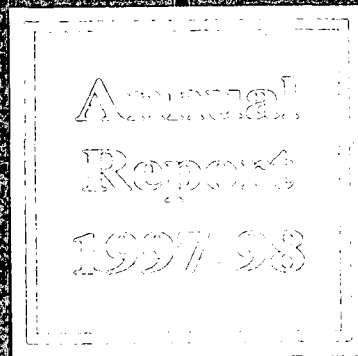 Annual
Report
1997-98